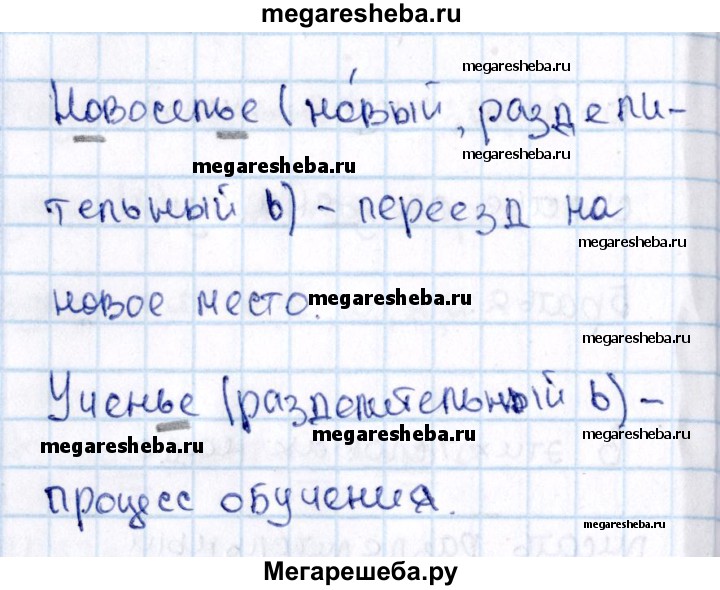 megaresheba.ru
megaresheba.ru
Новоселье (но́вый, раздели-
megaresheba.ru
megaresheba.ru
тельный ь) – переезд на
megaresheba.ru
новое место.
megaresheba.ru
megaresheba.ru
Ученье (разделительный ь) –
megaresheba.ru
megaresheba.ru
megaresheba.ru
процесс обучения.
megaresheba.ru
Мегарешеба.ру